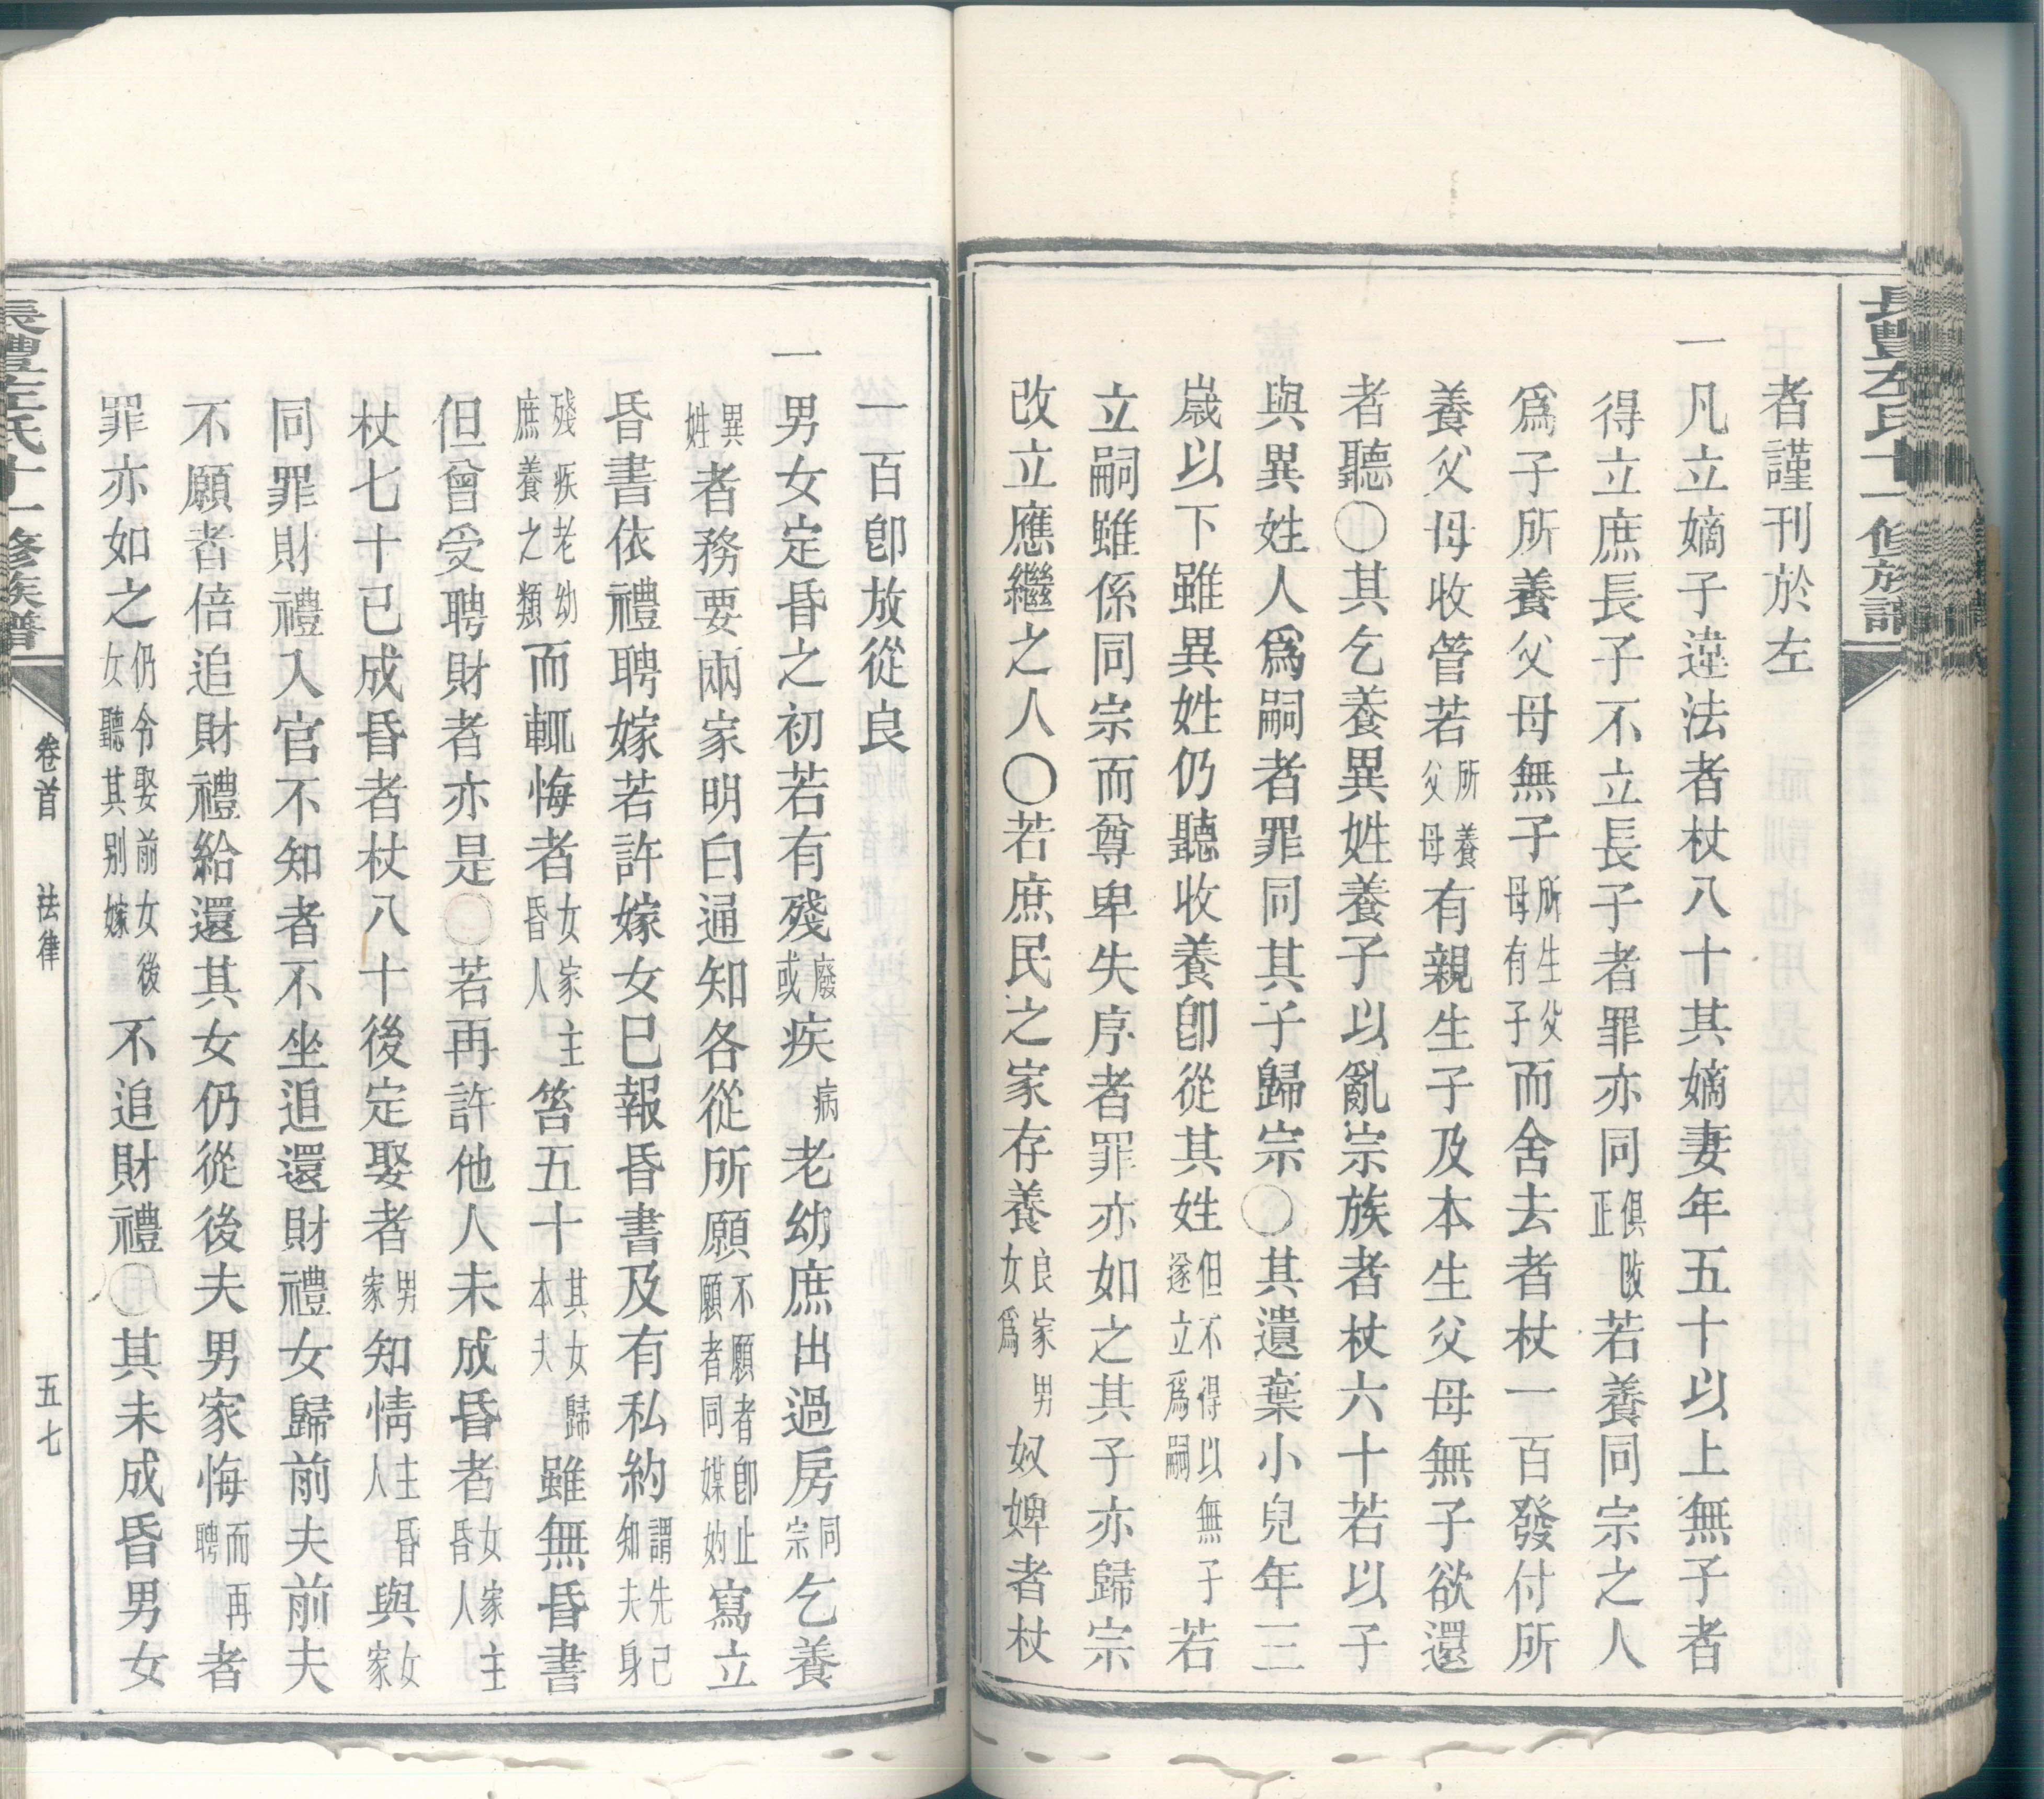 長豐左氏十一修族譜
者謹刊於左
一凡立嫡子違法者杖八十其嫡妻年五十以上無子者
得立庶長子不立長子者罪亦同俱改正若養同宗之人
爲子所養父母無子所生父母有子而舍去者杖一百發付所
養父母收管若所養父母有親生子及本生父母無子欲還
者聽〇其乞養異姓養子以亂宗族者杖六十若以子
與異姓人爲嗣者罪同其子歸宗〇其遺棄小兒年三
歲以下雖異姓仍聽收養卽從其姓但不得以無子遂立爲嗣若
立嗣雖係同宗而尊卑失序者罪亦如之其子亦歸宗
改立應繼之人〇若庶民之家存養良家男女爲奴婢者杖
一百卽放從良
一男女定昏之初若有殘廢或疾病老幼庶出過房同宗乞養
異姓者務要兩家明白通知各從所願不願者卽止願者同媒妁寫立
昏書依禮聘嫁若許嫁女已報昏書及有私約謂先已知夫身
殘疾老幼庶養之類而輒悔者女家主昏人笞五十其女歸本夫雖無昏書
但曾受聘財者亦是〇若再許他人未成昏者女家主昏人
杖七十已成昏者杖八十後定娶者男家知情主昏人與女家
同罪財禮入官不知者不坐追還財禮女歸前夫前夫
不願者倍追財禮給還其女仍從後夫男家悔而再聘者
罪亦如之仍令娶前女後女聽其别嫁不追財禮〇其未成昏男女
長豐左氏十一修族譜
卷首 法律
五七